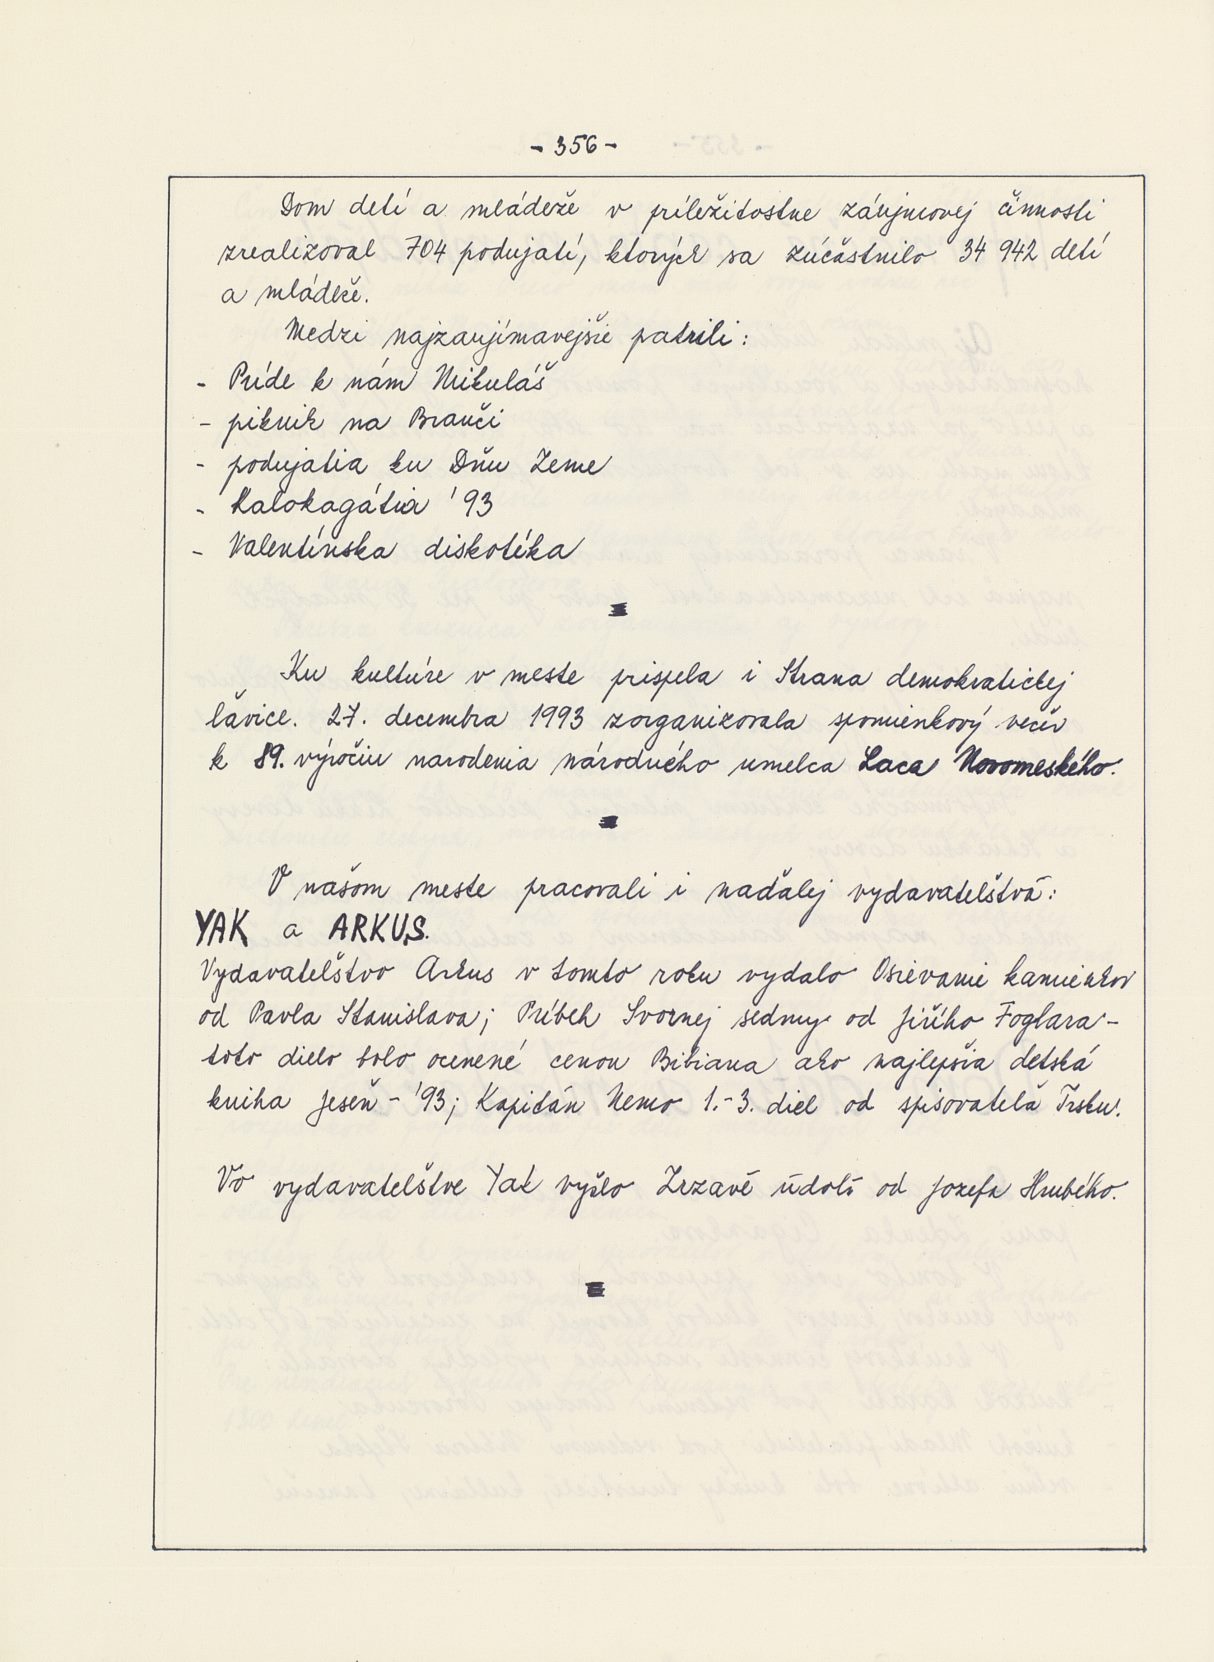 - 356 -
Dom detí a mládeže v príležitostne záujmovej činnosti
zrealizoval 704 podujatí, ktorých sa zúčastnilo 34 942 detí
a mládeže.
Medzi najzaujímavejšie patrili:
- Príde k nám Mikuláš
- piknik na Branči
- podujatia ku Dňu Zeme
- Kalokagátia '93
- Valentínska diskotéka
Ku kultúre v meste prispela i Strana demokratickej
ľavice. 27. decembra 1993 zorganizovala spomienkový večer
k 89. výročiu narodenia národného umelca Laca Novomeského.
V našom meste pracovali i naďalej vydavateľstvá:
YAK a ARKUS.
Vydavateľstvo Arkus v tomto roku vydalo Osievanie kamienkov
od Pavla Stanislava; Príbeh Svornej sedmy od Jiřího Foglara -
toto dielo bolo ocenené cenou Bibiana ako najlepšia detská
kniha jeseň - '93; Kapitán Nemo 1.-3. diel od spisovateľa Trsku.
Vo vydavateľstve Yak vyšlo Zrzavé údolí od Jozefa Hrubého.